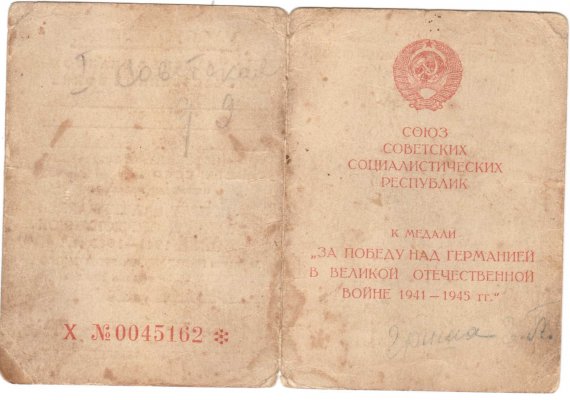 I Советская
X №0045162 *
СОЮЗ
СОВЕТСКИХ
СОЦИАЛИСТИЧЕСКИХ
РЕСПУБЛИК
К МЕДАЛИ
„ЗА ПОБЕДУ НАД ГЕРМАНИЕЙ
В ВЕЛИКОЙ ОТЕЧЕСТВЕННОЙ
ВОЙНЕ 1941 — 1945 гг."